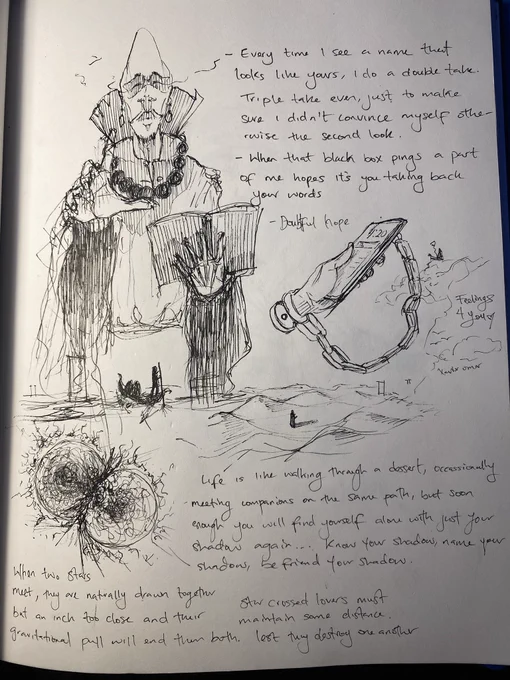 - Every time I see a name that
looks like yours, I do a double take.
Triple take even, just to make
sure I didn't convince myself othe-
rwise the second look.
- When that black box pings a part
of me hopes it's you taking back
your words
- Doubtful hope
4:20
Feelings
4 you
Life is like walking through a dessert, occassionally
meeting companions on the same path, but soon
enough you will find yourself alone with just your
shadow again.... Know your shadow, name your
shadow, be friend your shadow.
When two stars
meet, they are naturally drawn together
but an inch too close and their
gravitational pull will end them both.
Star crossed lovers must
maintain some distance.
lest they destroy one another